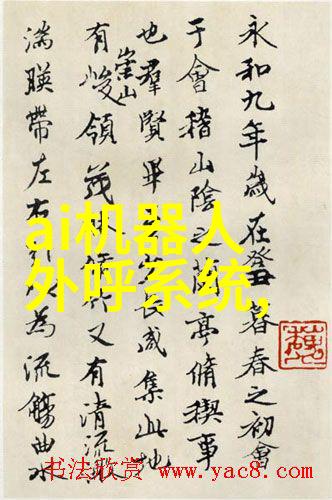 永和九年歲在癸丑暮春之初會
于會稽山陰之蘭亭脩稧事
也羣賢畢長咸集此地
有崇山峻領茂林竹又有清流激
湍暎帶左右引以為流觴曲水
ai机器人
外呼系统,
书法欣赏 www.yac8.com